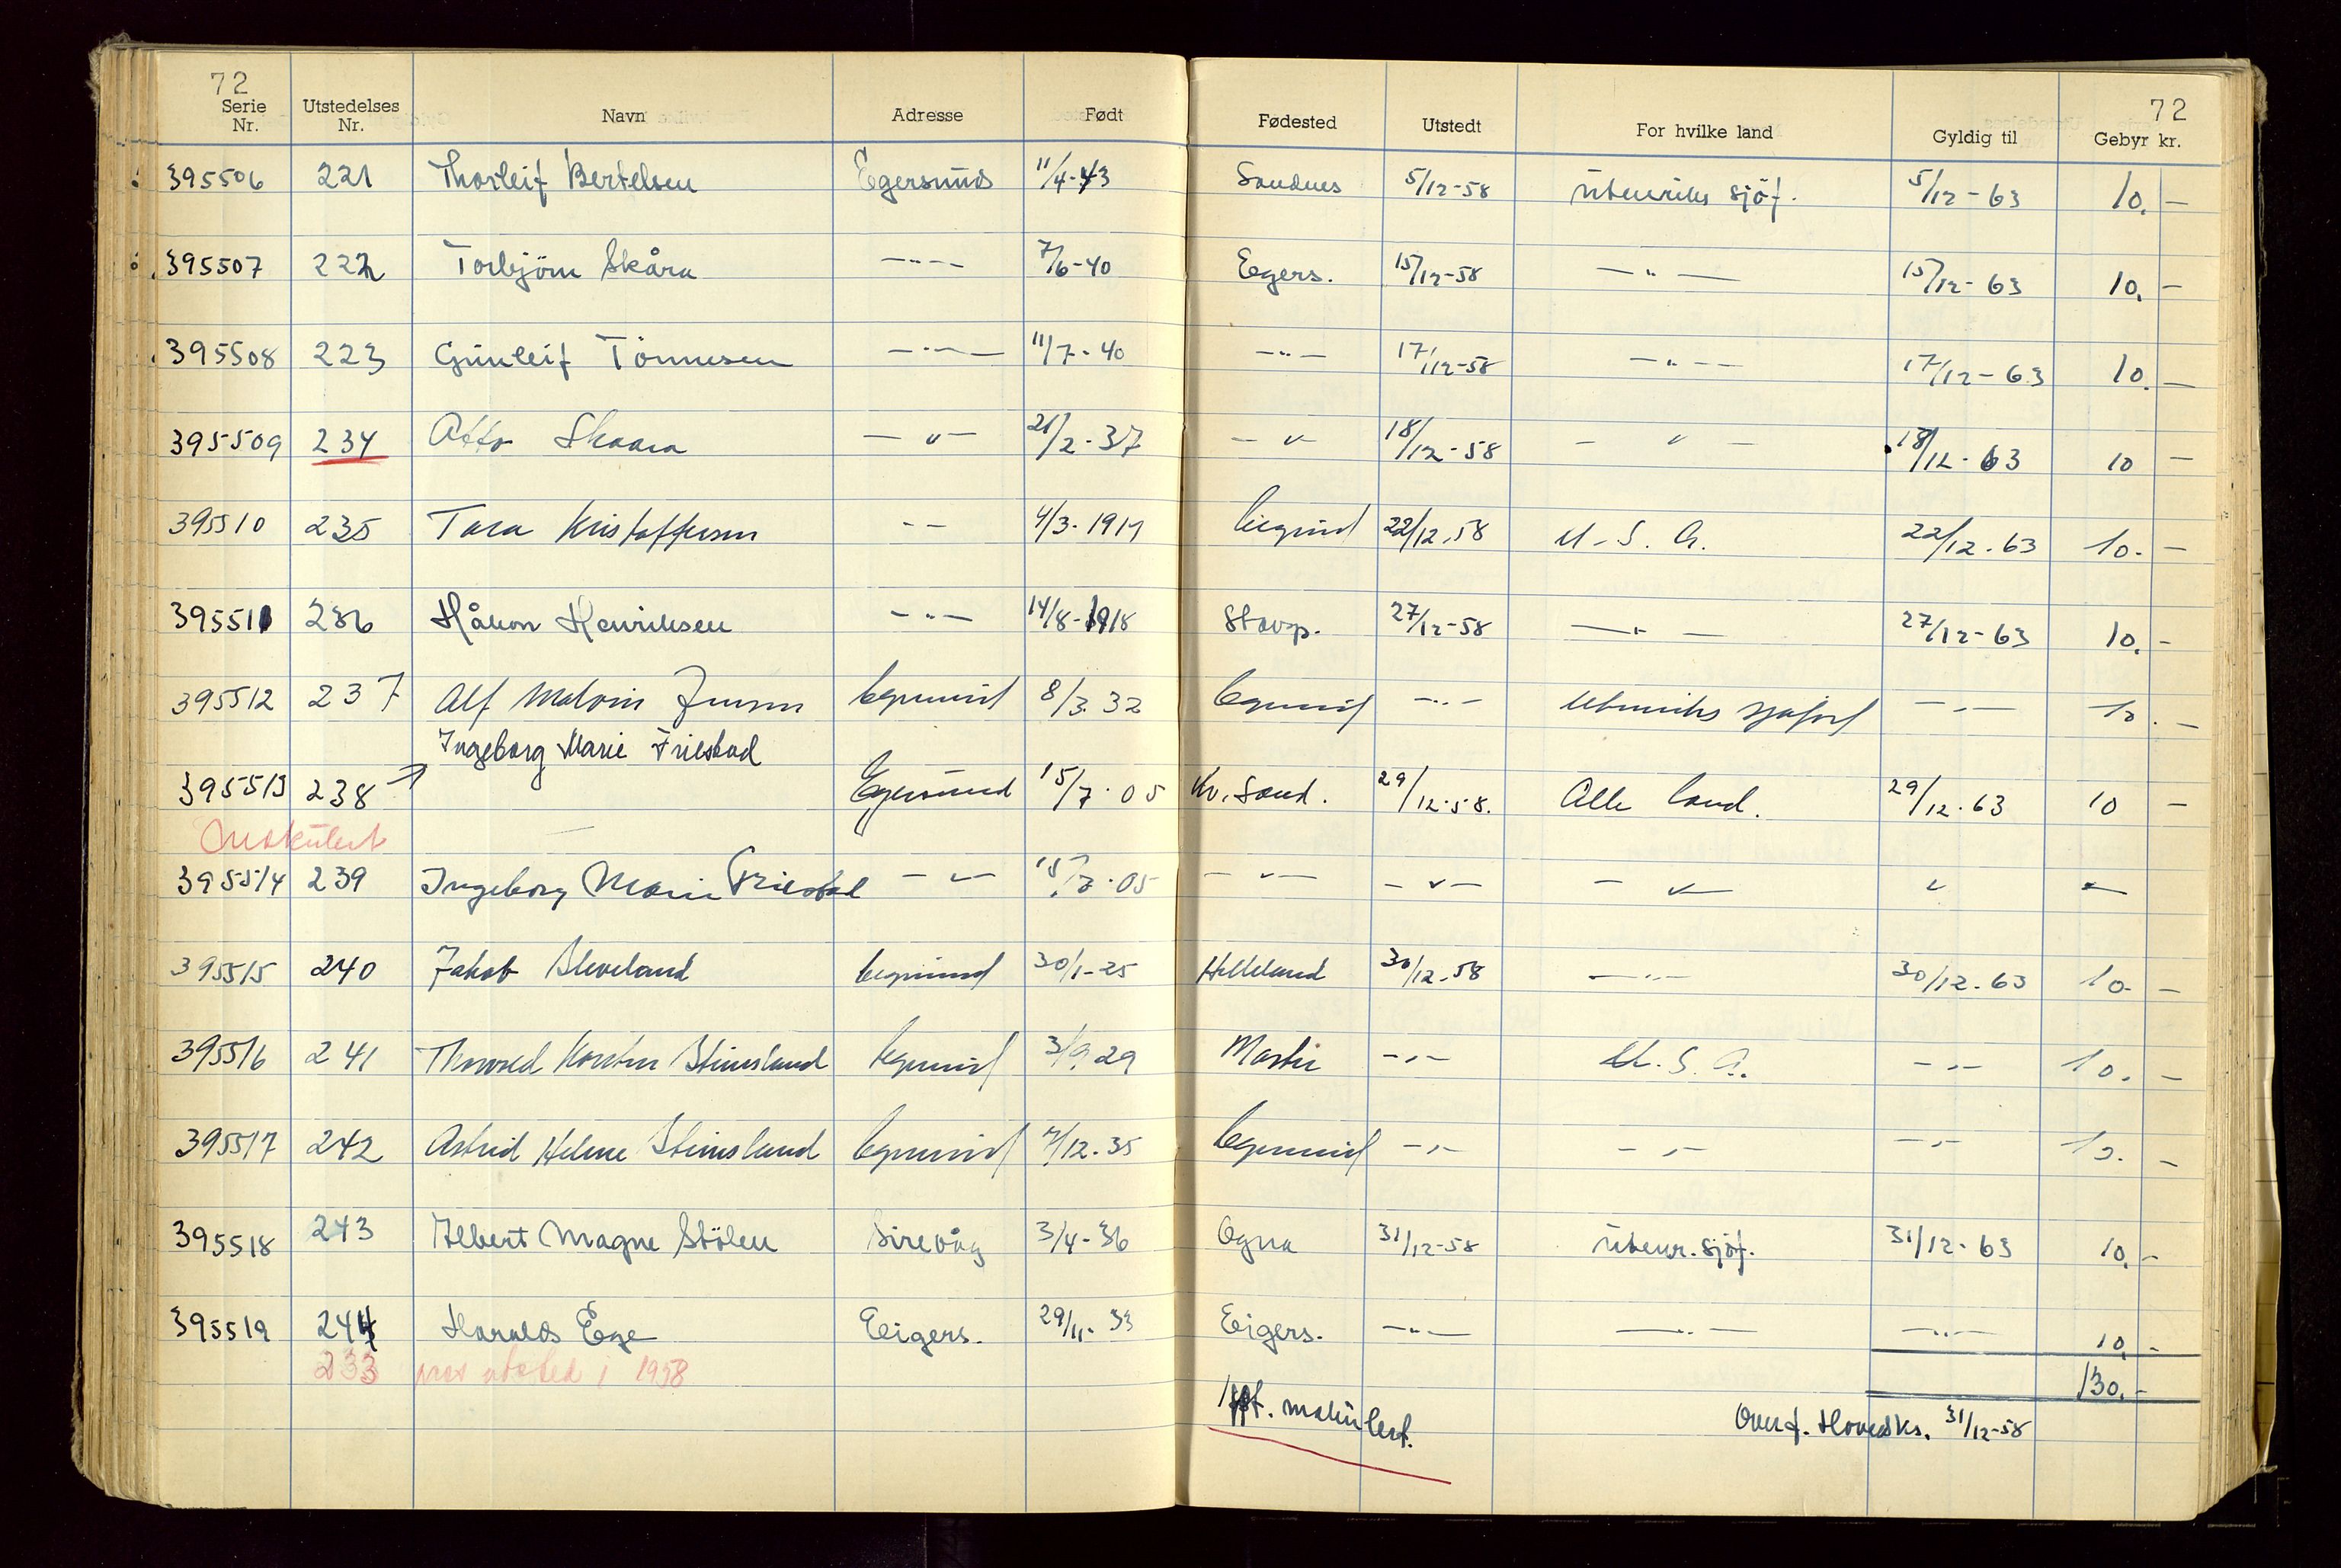 72 72
Serie Nr. Utstedelses Nr. Navn Adresse Født Fødested Utstedt For hvilke land Gyldig til Gebyr kr.
395506 221 Thorleif Bertelsen Egersund 11/4-43 Sandnes 5/12-58 utenriks sjöf. 5/12-63 10.-
395507 222 Torbjörn Skåra -"- 7/6-40 Egers. 15/12-58 -"- 15/12-63 10.-
395508 223 Gunleif Tönnesen -"- 11/7-40 -"- 17/12-58 -"- 17/12-63 10.-
395509 234 Otto Skaara -"- 21/2-37 -"- 18/12-58 -"- 18/12-63 10 -
395510 235 Tara Kristoffersen -- 4/3-1917 Eigersund 22/12.58 U.S.A. 22/12.63 10.-
395511 236 Håkon Henriksen -"- 14/8-1918 Stavgr. 27/12-58 -"- 27/12-63 10.-
395512 237 Alf Malvin Jensen Egersund 8/3.32 Egersund -"- Utenriks sjøfart -"- 10.-
Ingeborg Marie Friestad
395513 238 Egersund 15/7.05 Kr. Sand. 29/12.58. Alle land. 29/12.63 10 -
Makulert
395514 239 Ingeborg Marie Friestad -"- 15/7.05 -"- -"- -"- " -
395515 240 Jakob Sleveland Egersund 30/1-25 Helleland 30/12.58 -"- 30/12.63 10.-
395516 241 Thorvald Karsten Steinsland Egersund 3/9.29 Moster -"- U.S.A. -"- 10.-
395517 242 Astrid Helene Steinsland Egersund 7/12.35 Egersund -"- -"- -"- 10.-
395518 243 Albert Magne Stölen Sirevåg 3/4-36 Ogna 31/12-58 utenr. sjöf. 31/12-63 10.-
395519 244 Harald Ege Eigers. 29/11-33 Eigers. -"- -"- -"- 10.-
233 pass utsted i 1958 130.-
1 pft. makulert. Overf. Hovedks. 31/12-58